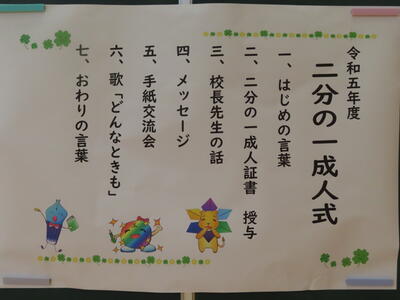 令和五年度
二分の一成人式
一、はじめの言葉
二、二分の一成人証書　授与
三、校長先生の話
四、メッセージ
五、手紙交流会
六、歌「どんなときも」
七、おわりの言葉